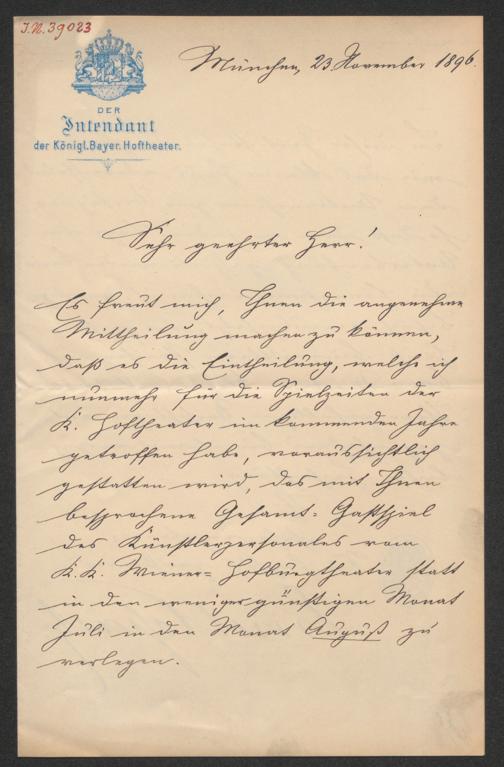 J.N. 39023
München, 23. November 1896.
DER
Intendant
der Königl. Bayer. Hoftheater.
Sehr geehrter Herr!
Es freut mich, Ihnen die angenehme
Mittheilung machen zu können,
daß es die Eintheilung, welche ich
nunmehr für die Spielzeiten der
K. Hoftheater im kommenden Jahre
getroffen habe, voraussichtlich
gestatten wird, das mit Ihnen
besprochene Gesamt-Gastspiel
des Künstlerpersonales vom
K. K. Wiener-Hofburgtheater statt
in den weniger günstigen Monat
Juli in den Monat August zu
verlegen.